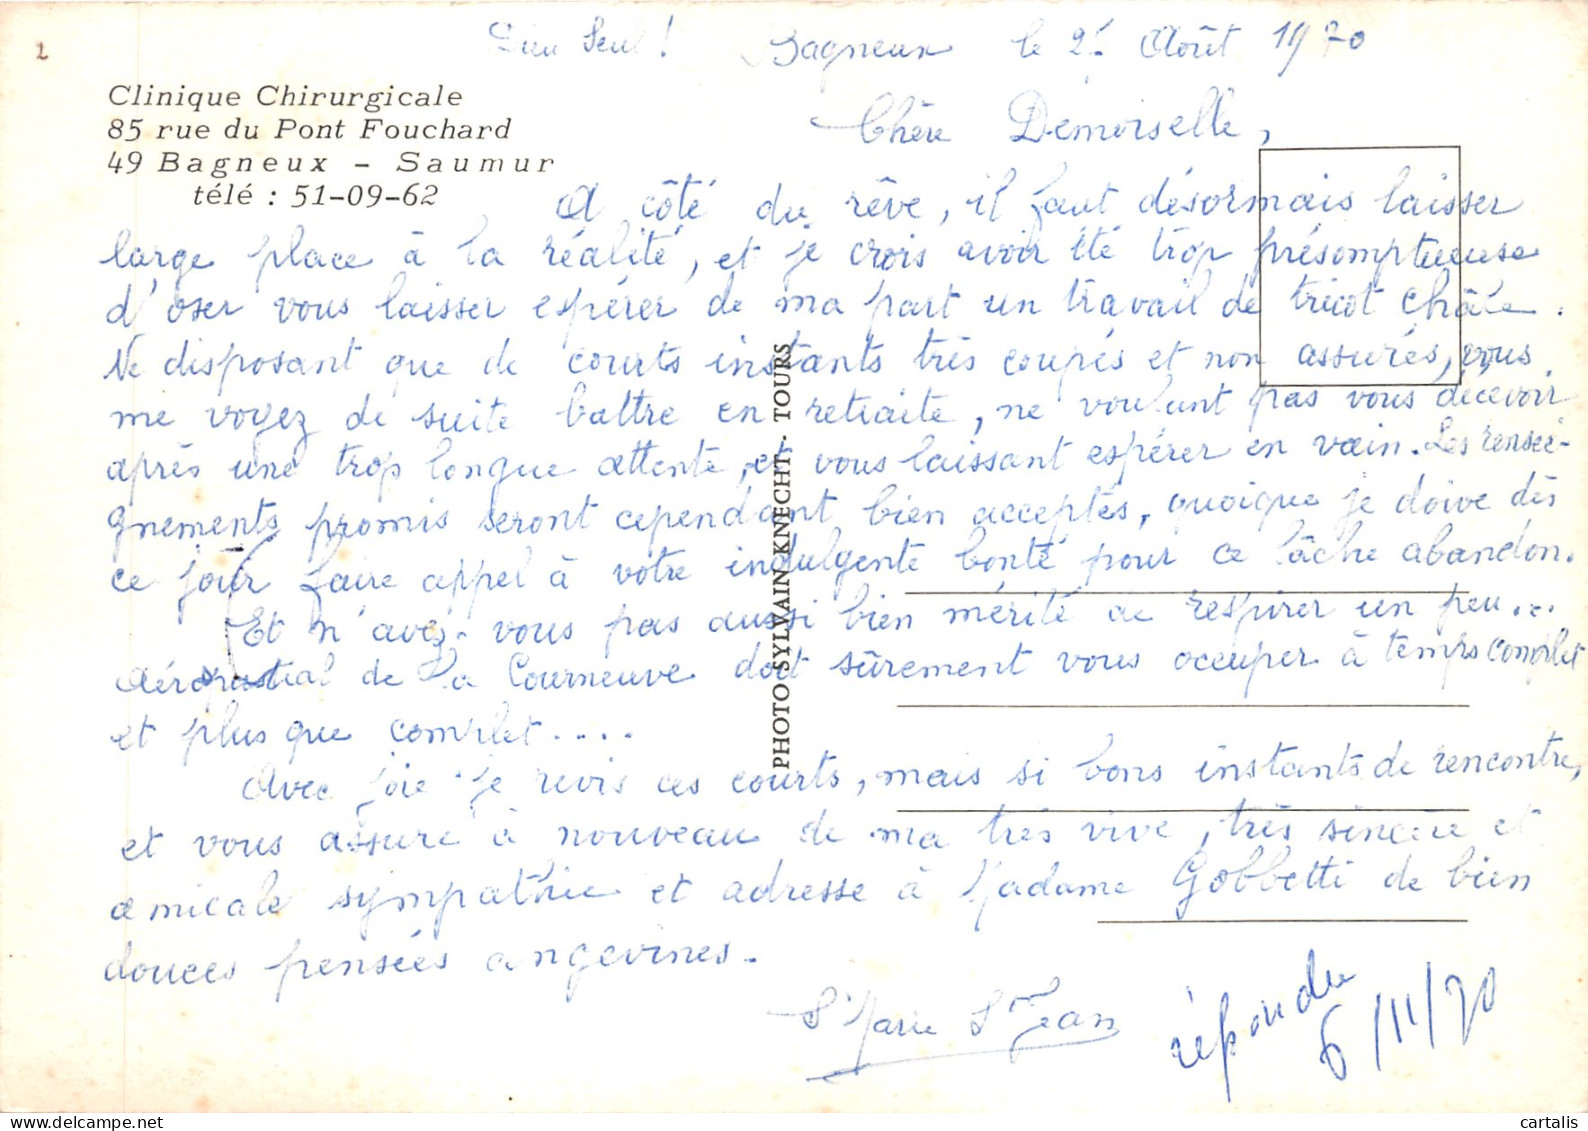 2
Dieu Seul ! Bagneux le Août 1970
Clinique Chirurgicale
85 rue du Pont Fouchard
49 Bagneux - Saumur
télé : 51-09-62
Chère Demoiselle,
A côté du rêve, il faut désormais laisser
large place à la réalité, et je crois avoir été trop présomptueuse
d'oser vous laisser espérer de ma part un travail de tricot châle.
Ne disposant que de courts instants très coupés et non assurés, vous
me voyez de suite battre en retraite, ne voulant pas vous décevoir
après une trop longue attente, et vous laissant espérer en vain. Les rensei-
gnements promis seront cependant bien acceptés, quoique je doive dès
ce jour faire appel à votre indulgente bonté pour ce lâche abandon.
Et n'avez-vous pas aussi bien mérité de respirer un peu...
Aérospatial de La Courneuve doit sûrement vous occuper à temps complet
et plus que complet....
Avec joie je revis ces courts, mais si bons instants de rencontre,
et vous assure à nouveau de ma très vive, très sincère et
amicale sympathie et adresse à Madame Gobbetti de bien
douces pensées angevines.
Sr Marie St Jean
répondu
6/11/70
PHOTO SYLVAIN KNECHT - TOURS
cartalis